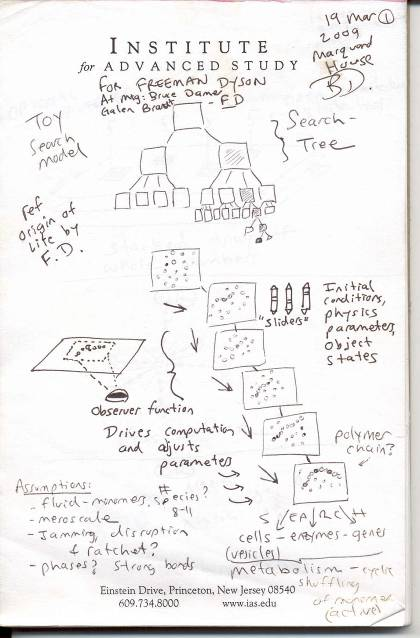 19 Mar ①
2009
Marquand
House
B.D.
INSTITUTE
for ADVANCED STUDY
FOR FREEMAN DYSON
At mtg: Bruce Damer
Galen Brandt - F.D
Toy
Search
model
Search-
Tree
ref
origin of
Life by
F.D.
"sliders"
Initial
conditions,
physics
parameters,
object
states
Observer function
Drives computation
and adjusts
parameters
polymer
chain?
Assumptions:
- fluid-monomers, # species?
8-11
- mesoscale
- Jamming, disruption
& ratchet?
- phases? strong bonds
S E A R C H
cells - enzymes - genes
(vesicles)
metabolism - cyclic
shuffling
of monomer
(active)
Einstein Drive, Princeton, New Jersey 08540
609.734.8000 www.ias.edu